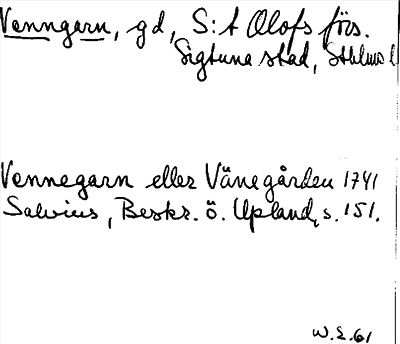 Venngarn, gd, S:t Olofs förs.
Sigtuna stad, Sthlms l
Vennegarn eller Vänegården 1741
Salvius, Beskr. ö. Upland, s. 151.
W.E. 61